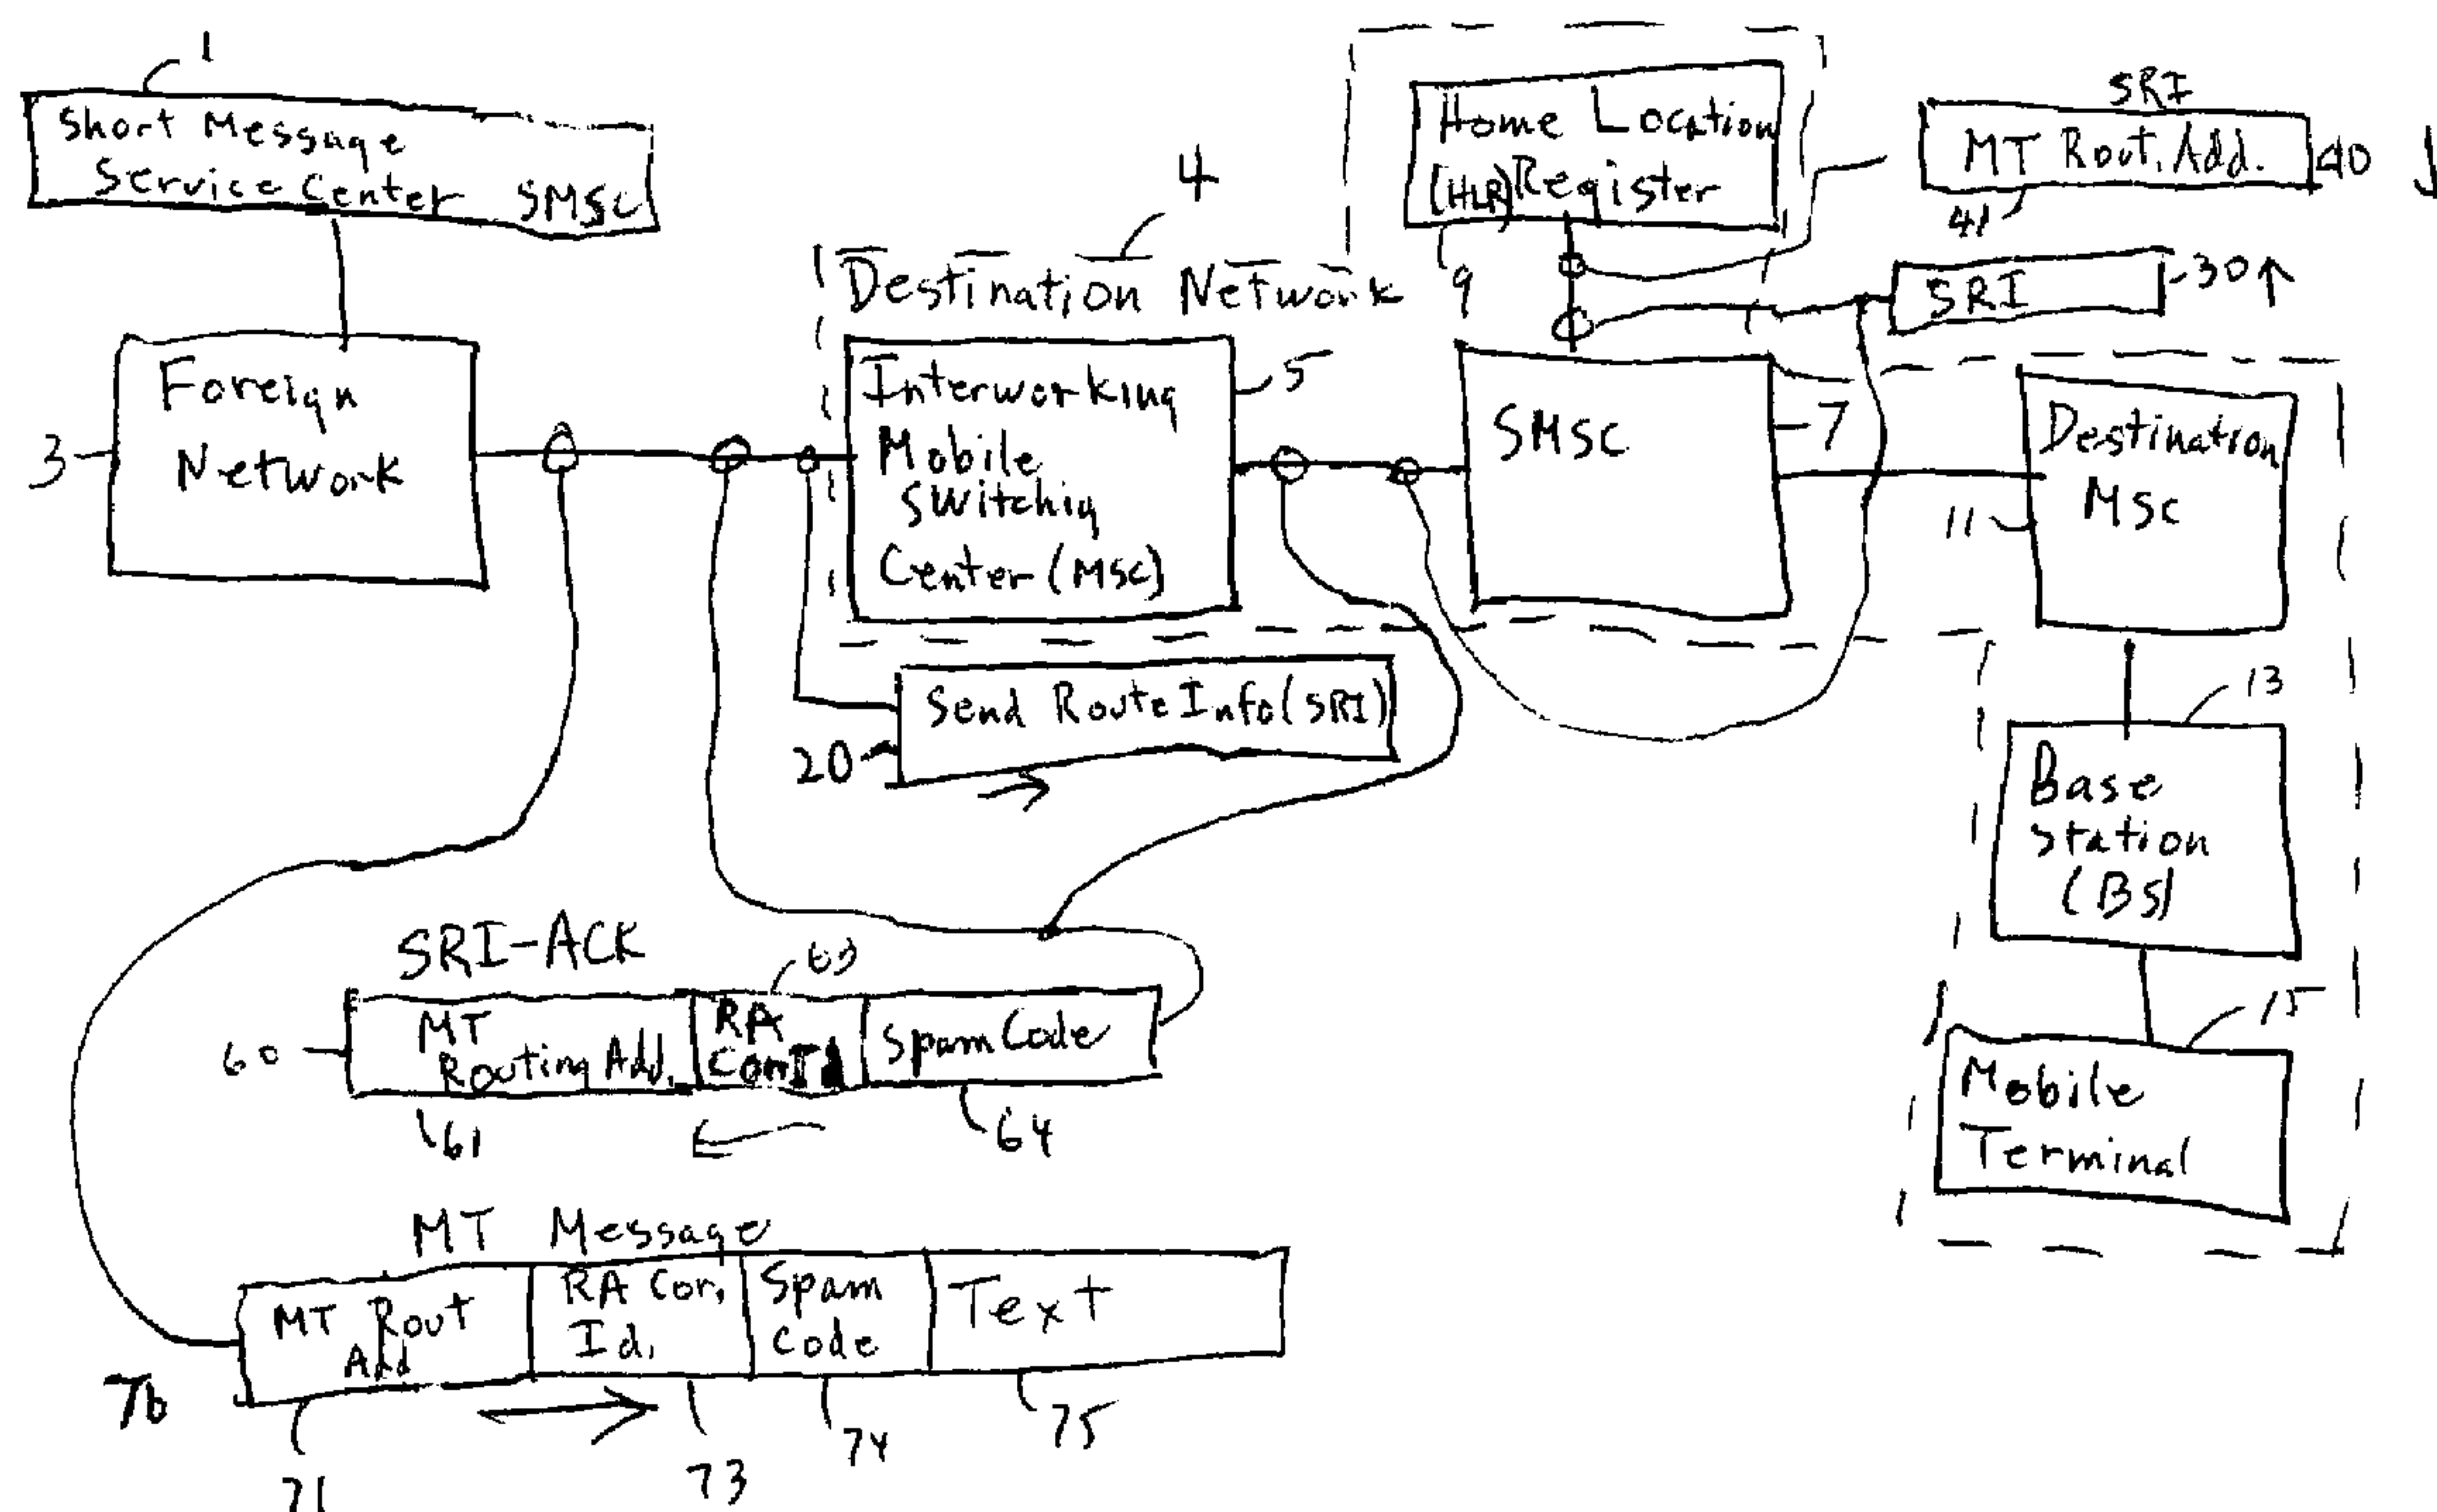 1
Short Message
Service Center SMSC
4
Home Location
(HLR) Register
9
SRI
MT Rout. Add.
40
41
SRI
30
Destination Network
Foreign
Network
3
Interworking
Mobile
Switching
Center (MSC)
5
SMSC
7
Destination
MSC
11
Send Route Info (SRI)
20
13
Base
Station
(BS)
15
Mobile
Terminal
SRI-ACK
60
MT
Routing Add.
RA
Spam Code
61
64
MT Message
MT Rout
Add
RA Cor.
Id.
Spam
Code
Text
71
73
74
75